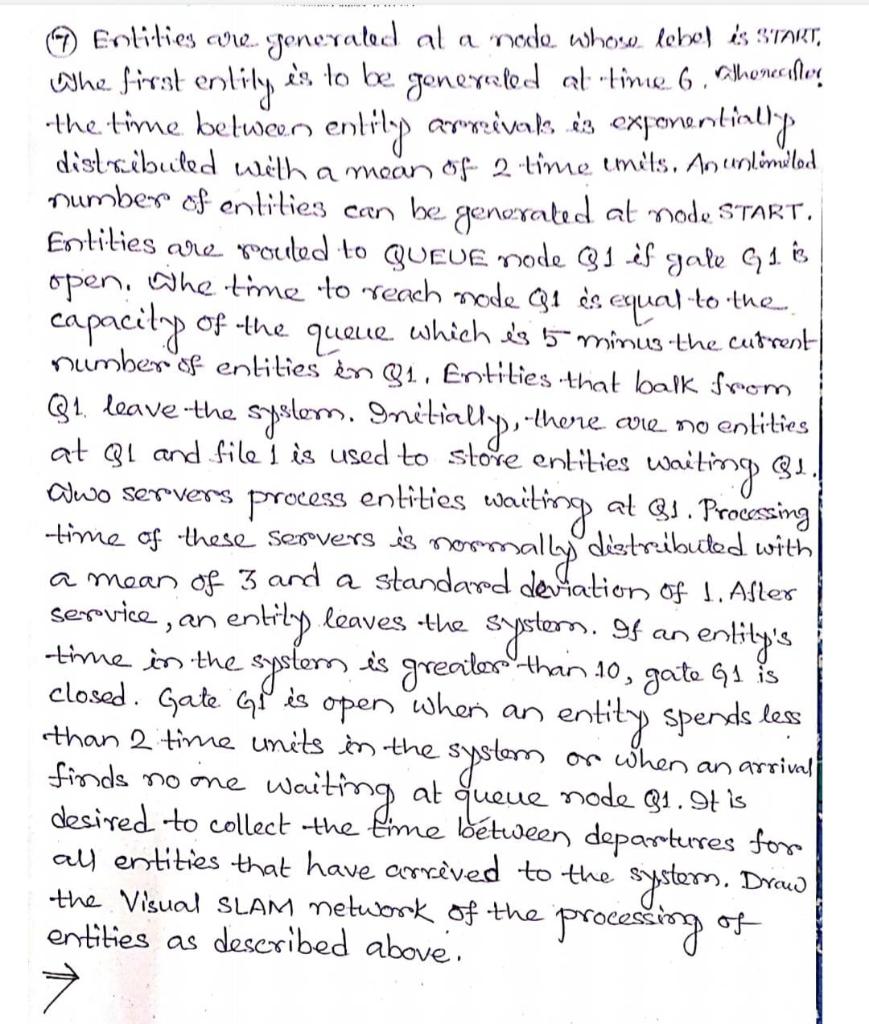 ⑦ Entities are generated at a node whose lebel is START.
The first entity is to be generated at time 6. Thereafter
the time between entity arreivals is exponentially
distributed with a mean of 2 time units. An unlimited
number of entities can be generated at node START.
Entities are routed to QUEUE node Q1 if gate G1 is
open. The time to reach node Q1 is equal to the
capacity of the queue which is 5 minus the current
number of entities in Q1. Entities that balk from
Q1 leave the system. Initially, there are no entities
at Q1 and file 1 is used to store entities waiting Q1.
Two servers process entities waiting at Q1. Processing
time of these servers is normally distributed with
a mean of 3 and a standard deviation of 1. After
service, an entity leaves the system. If an entity's
time in the system is greater than 10, gate G1 is
closed. Gate G1 is open when an entity spends less
than 2 time units in the system or when an arrival
finds no one waiting at queue node Q1. It is
desired to collect the time between departures for
all entities that have arrived to the system. Draw
the Visual SLAM network of the processing of
entities as described above.
⇒